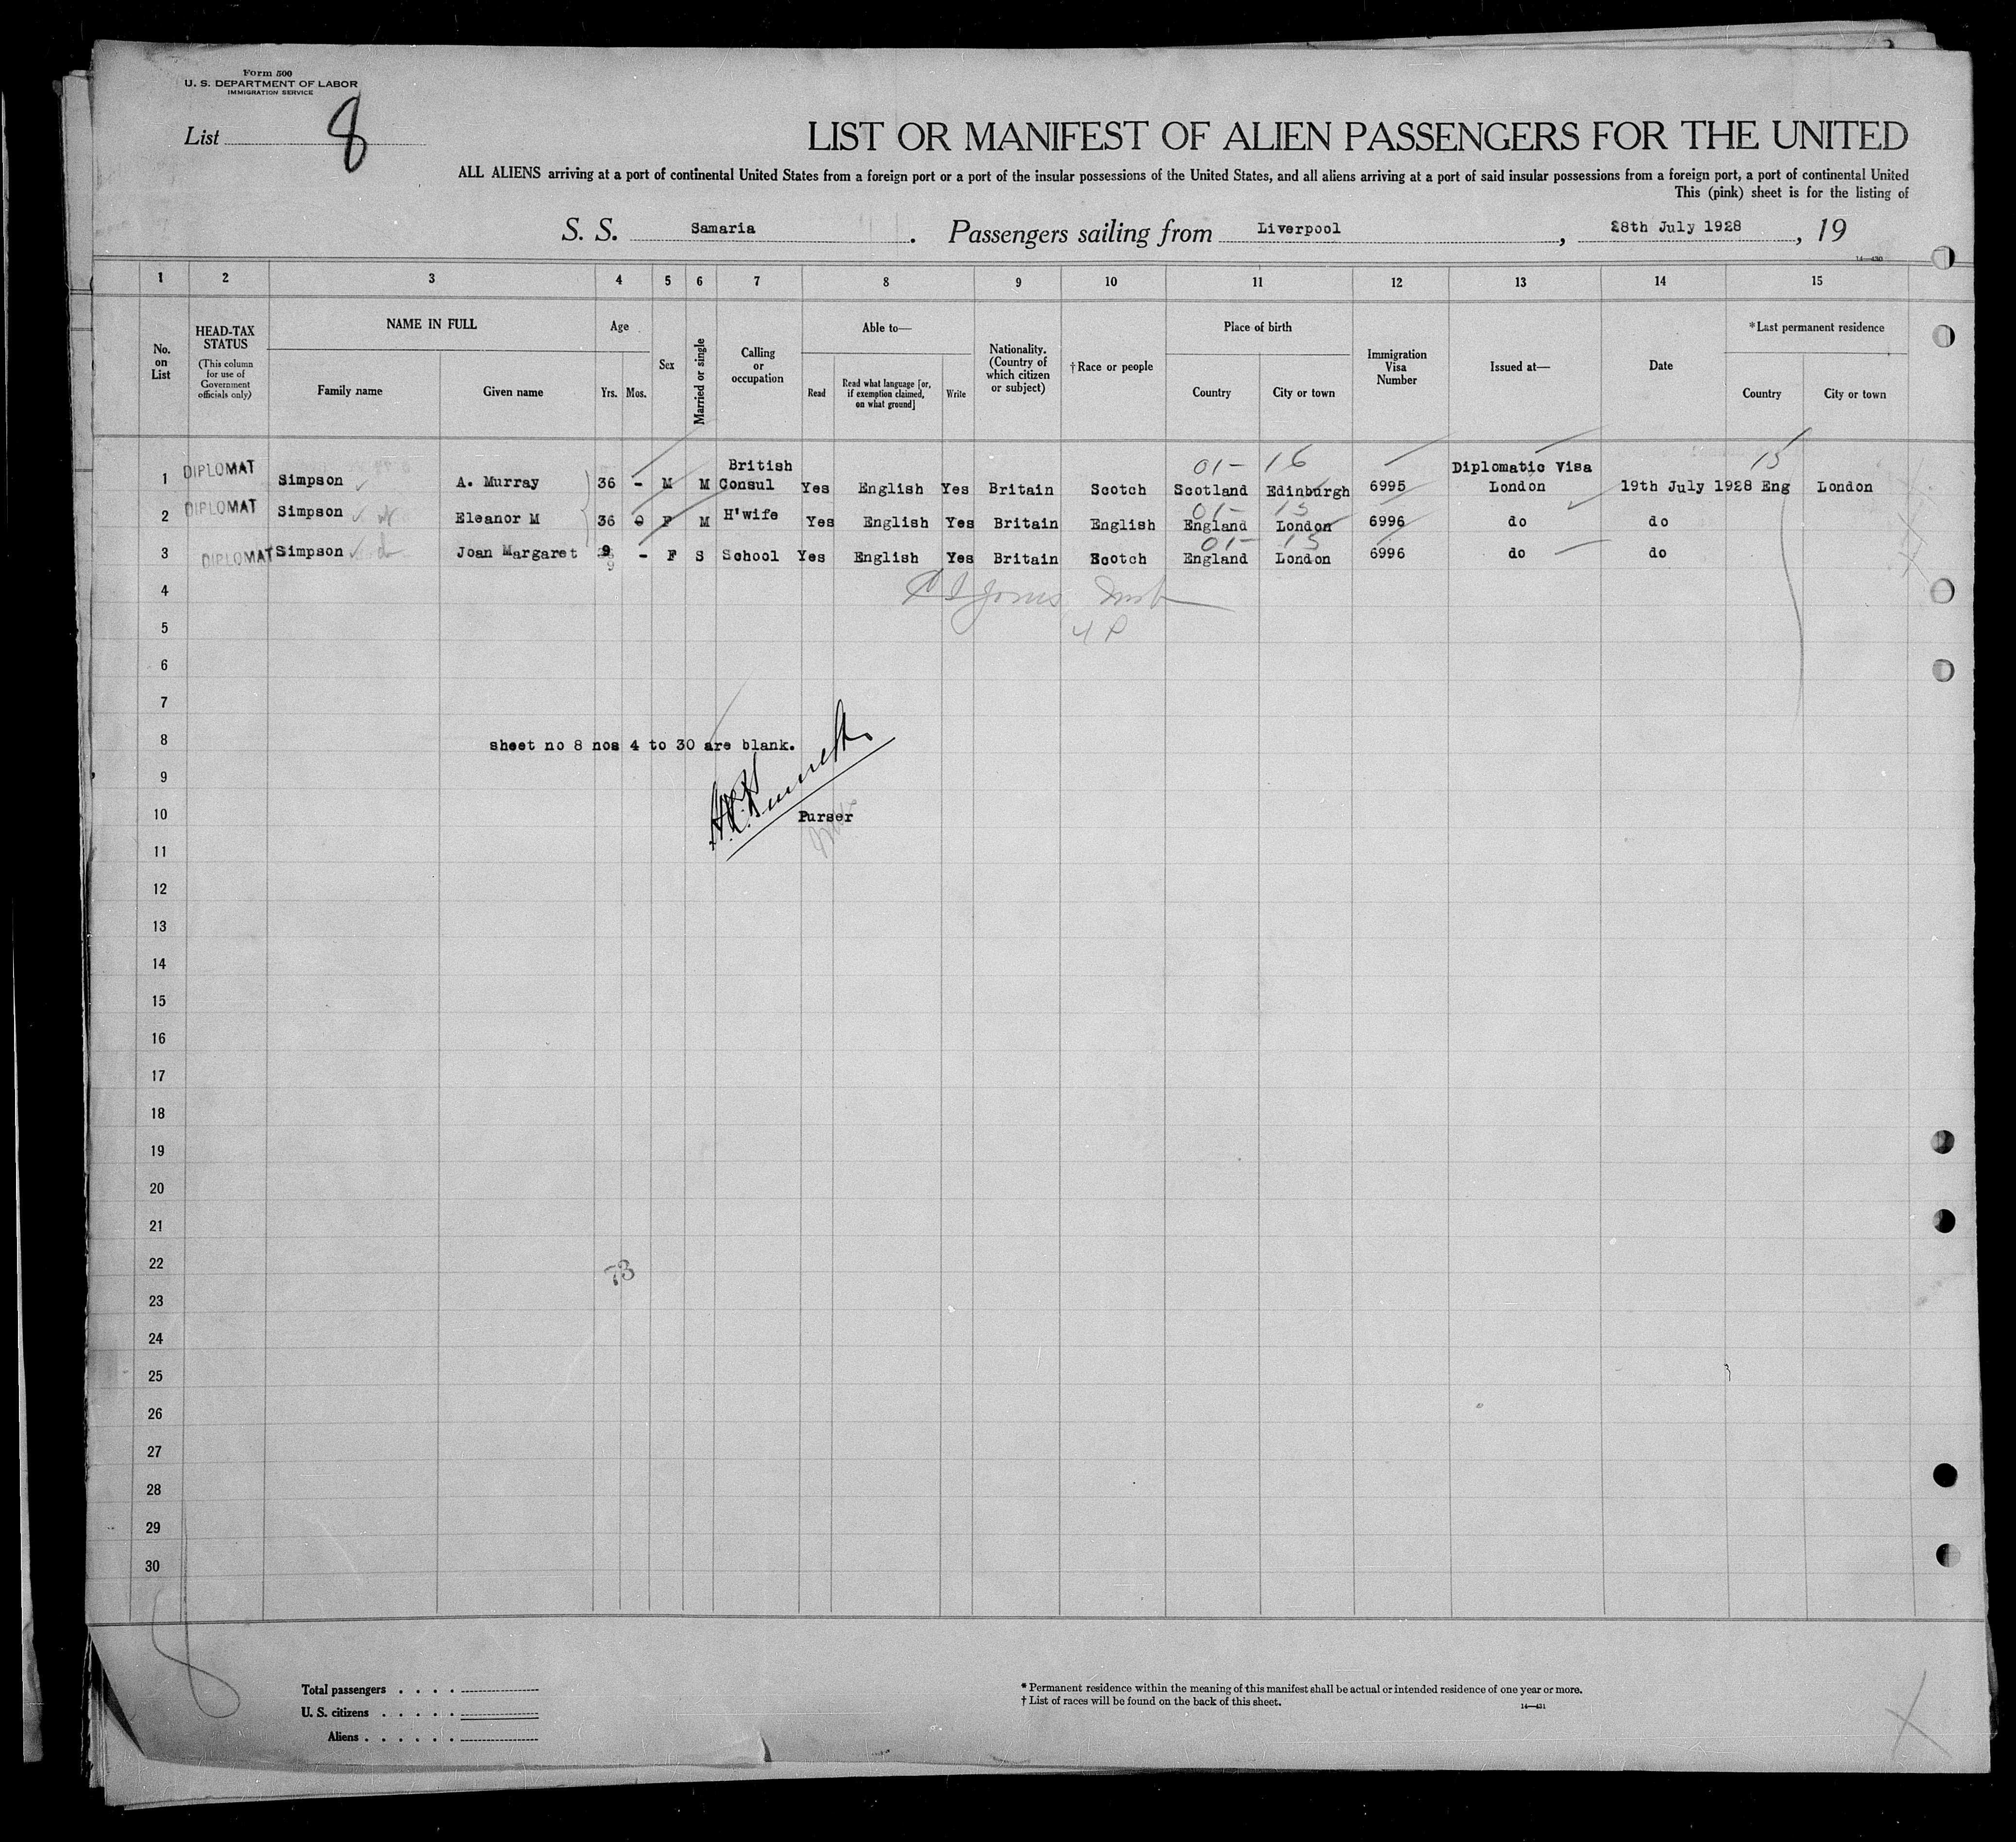 Form 500
U. S. DEPARTMENT OF LABOR
IMMIGRATION SERVICE
List 8
LIST OR MANIFEST OF ALIEN PASSENGERS FOR THE UNITED
ALL ALIENS arriving at a port of continental United States from a foreign port or a port of the insular possessions of the United States, and all aliens arriving at a port of said insular possessions from a foreign port, a port of continental United
This (pink) sheet is for the listing of
S. S. Samaria. Passengers sailing from Liverpool, 28th July 1928, 19
14—430
1 2 3 4 5 6 7 8 9 10 11 12 13 14 15
No. on List
HEAD-TAX STATUS
(This column for use of Government officials only)
NAME IN FULL
Family name
Given name
Age
Yrs. Mos.
Sex
Married or single
Calling or occupation
Able to—
Read
Read what language [or, if exemption claimed, on what ground]
Write
Nationality. (Country of which citizen or subject)
†Race or people
Place of birth
Country
City or town
Immigration Visa Number
Issued at—
Date
*Last permanent residence
Country
City or town
01- 16 15
1 DIPLOMAT Simpson A. Murray 36 - M M British Consul Yes English Yes Britain Scotch Scotland Edinburgh 6995 Diplomatic Visa London 19th July 1928 Eng London
01- 15
2 DIPLOMAT Simpson Eleanor M 36 0 F M H'wife Yes English Yes Britain English England London 6996 do do
01- 15
3 DIPLOMAT Simpson Joan Margaret 9 - F S School Yes English Yes Britain Scotch England London 6996 do do
9
4
5
6
7
8 sheet no 8 nos 4 to 30 are blank.
9
10 Purser
11
12
13
14
15
16
17
18
19
20
21
22 73
23
24
25
26
27
28
29
30
8
Total passengers . . . .
U. S. citizens . . . . .
Aliens . . . . . .
* Permanent residence within the meaning of this manifest shall be actual or intended residence of one year or more.
† List of races will be found on the back of this sheet.
14—431
X